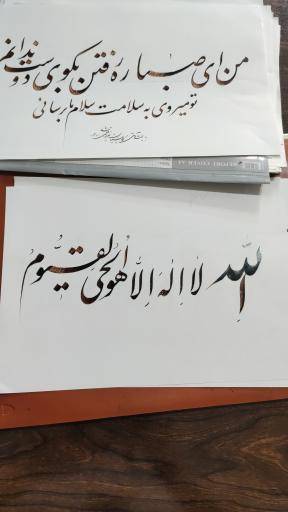 من ای صبا ره رفتن بکوی دوست ندانم
تو میروی به سلامت سلام ما برسانی
REPORT COVER A4
الله لا اله الا هو الحی القیوم